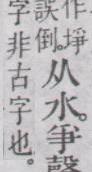 作埩
誤倒。
从水。爭聲
字非古字也。